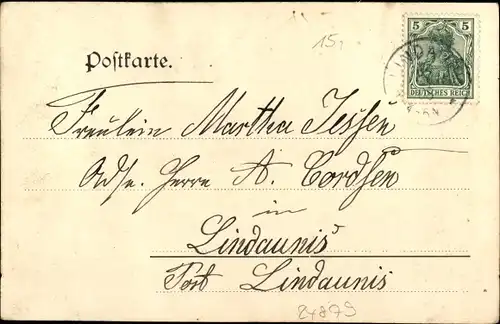 15,
5 5
DEUTSCHES REICH
Postkarte.
Fräulein Martha Jessen
Adr. Herrn A. Cordsen
in
Lindaunis
Post Lindaunis
24879